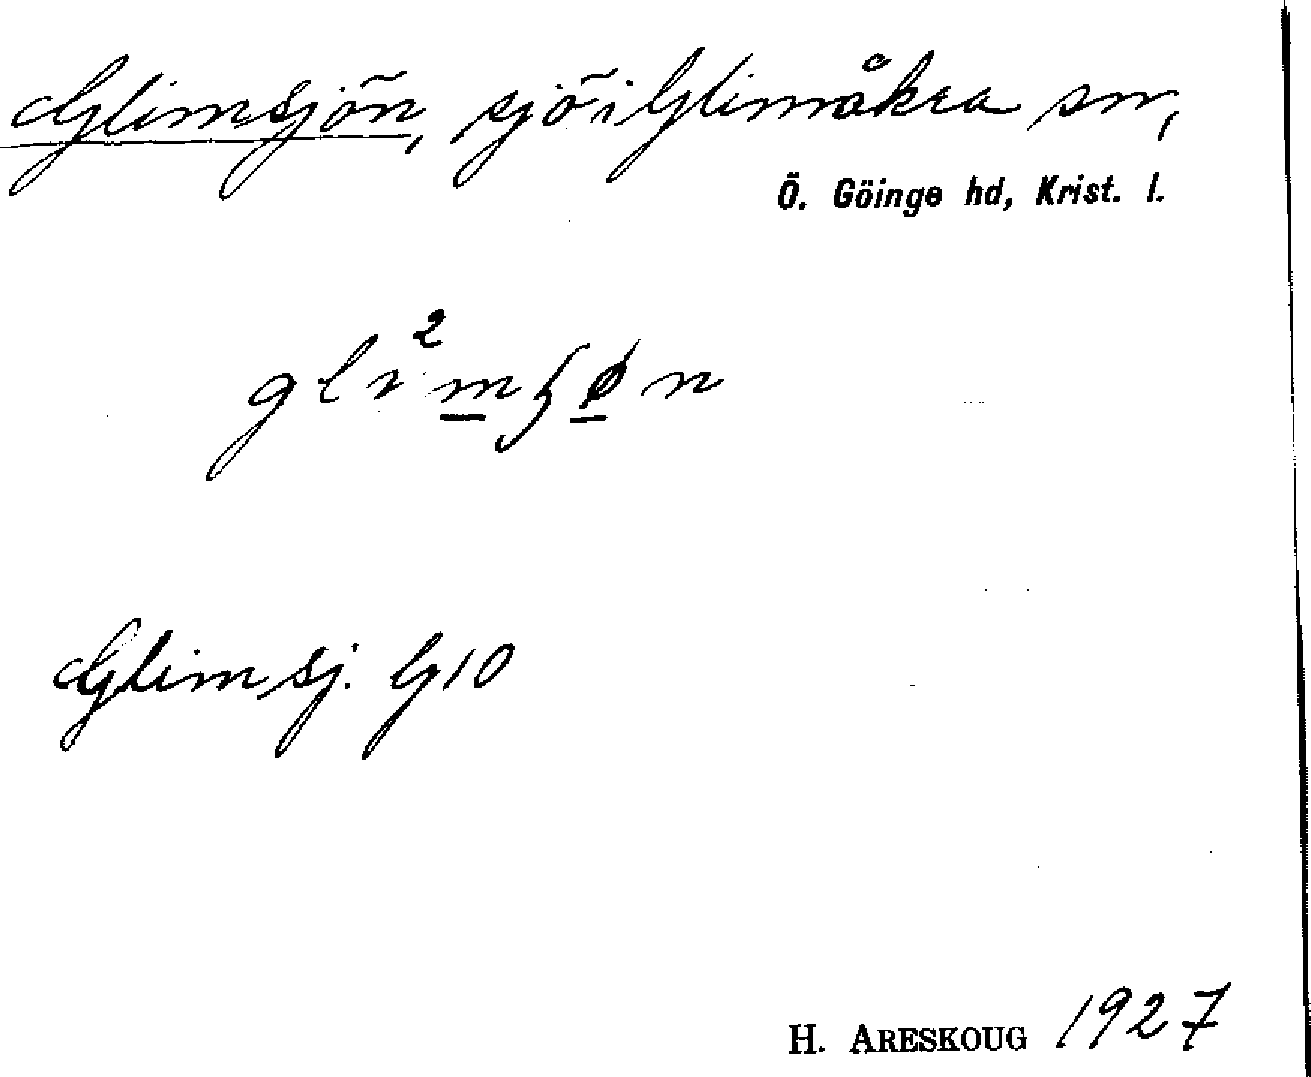 Glimsjön, sjö i Glimåkra sn,
Ö. Göinge hd, Krist. l.
gli²m̲ʃø̲n
Glimsj. G10
H. ARESKOUG 1927